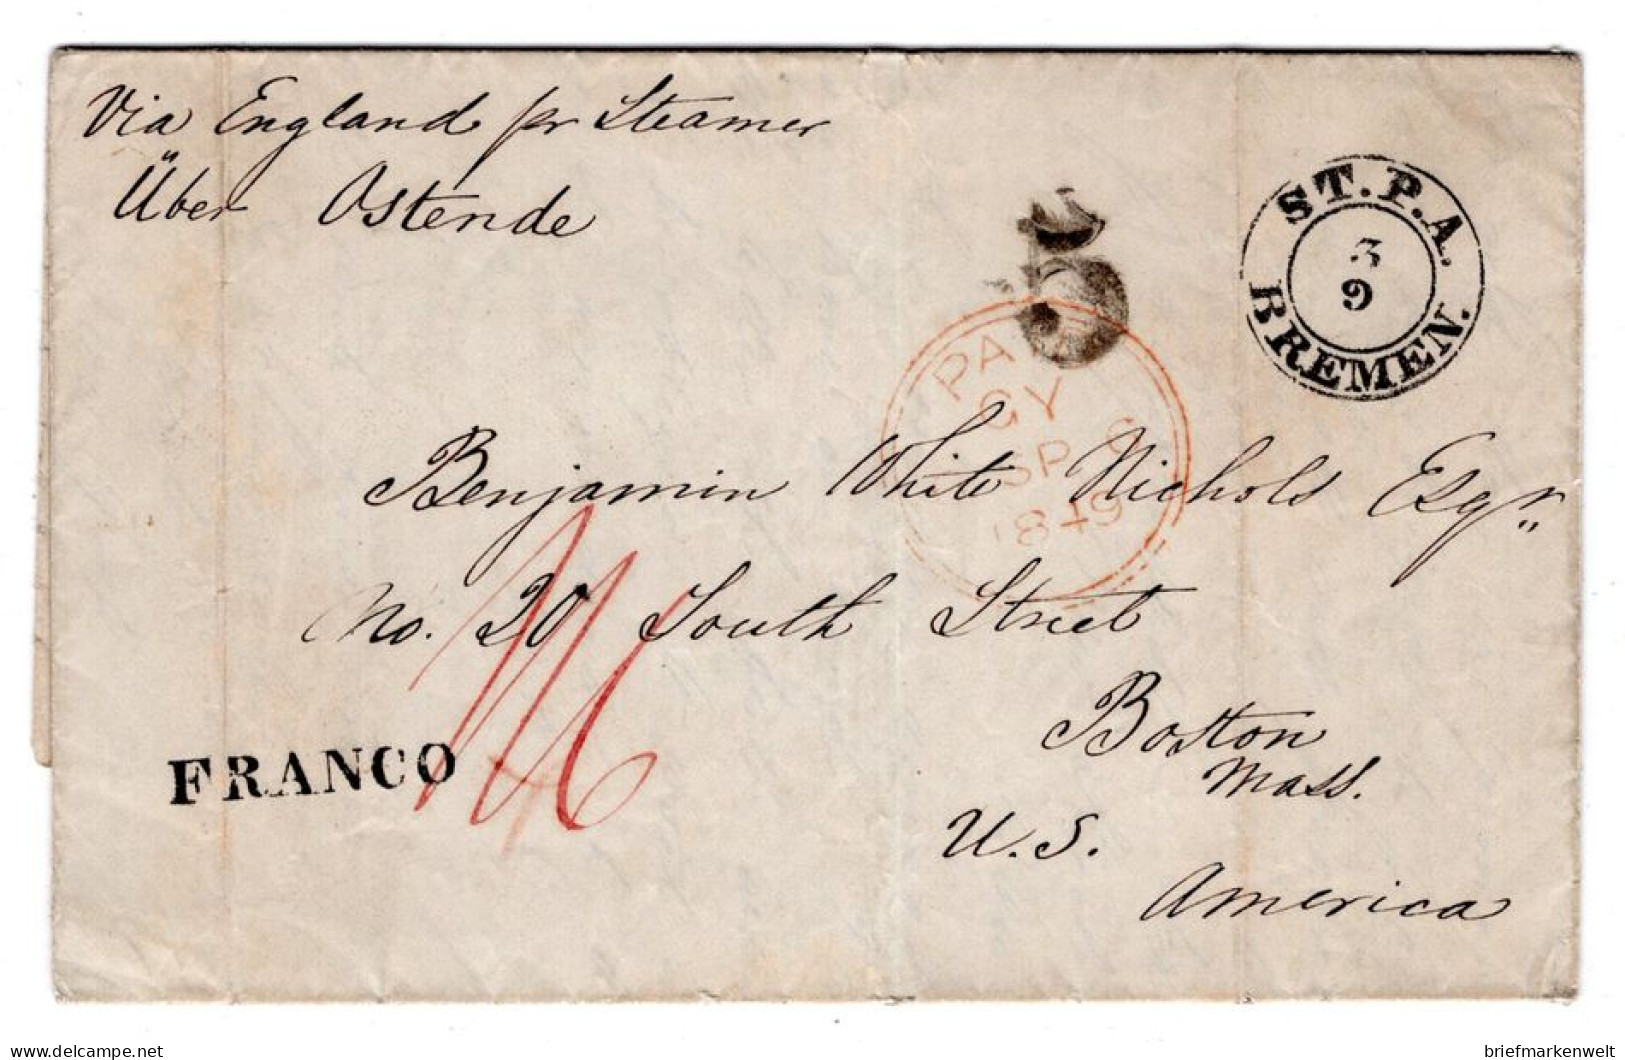 Via England pr Steamer
Über Ostende
5
ST. P. A.
3
9
BREMEN.
PA
GY
SP 6
1849
Benjamin White Nichols Esqr.
No. 20 South Street
Boston
Mass.
U. S.
America
FRANCO
delcampe.net
briefmarkenwelt